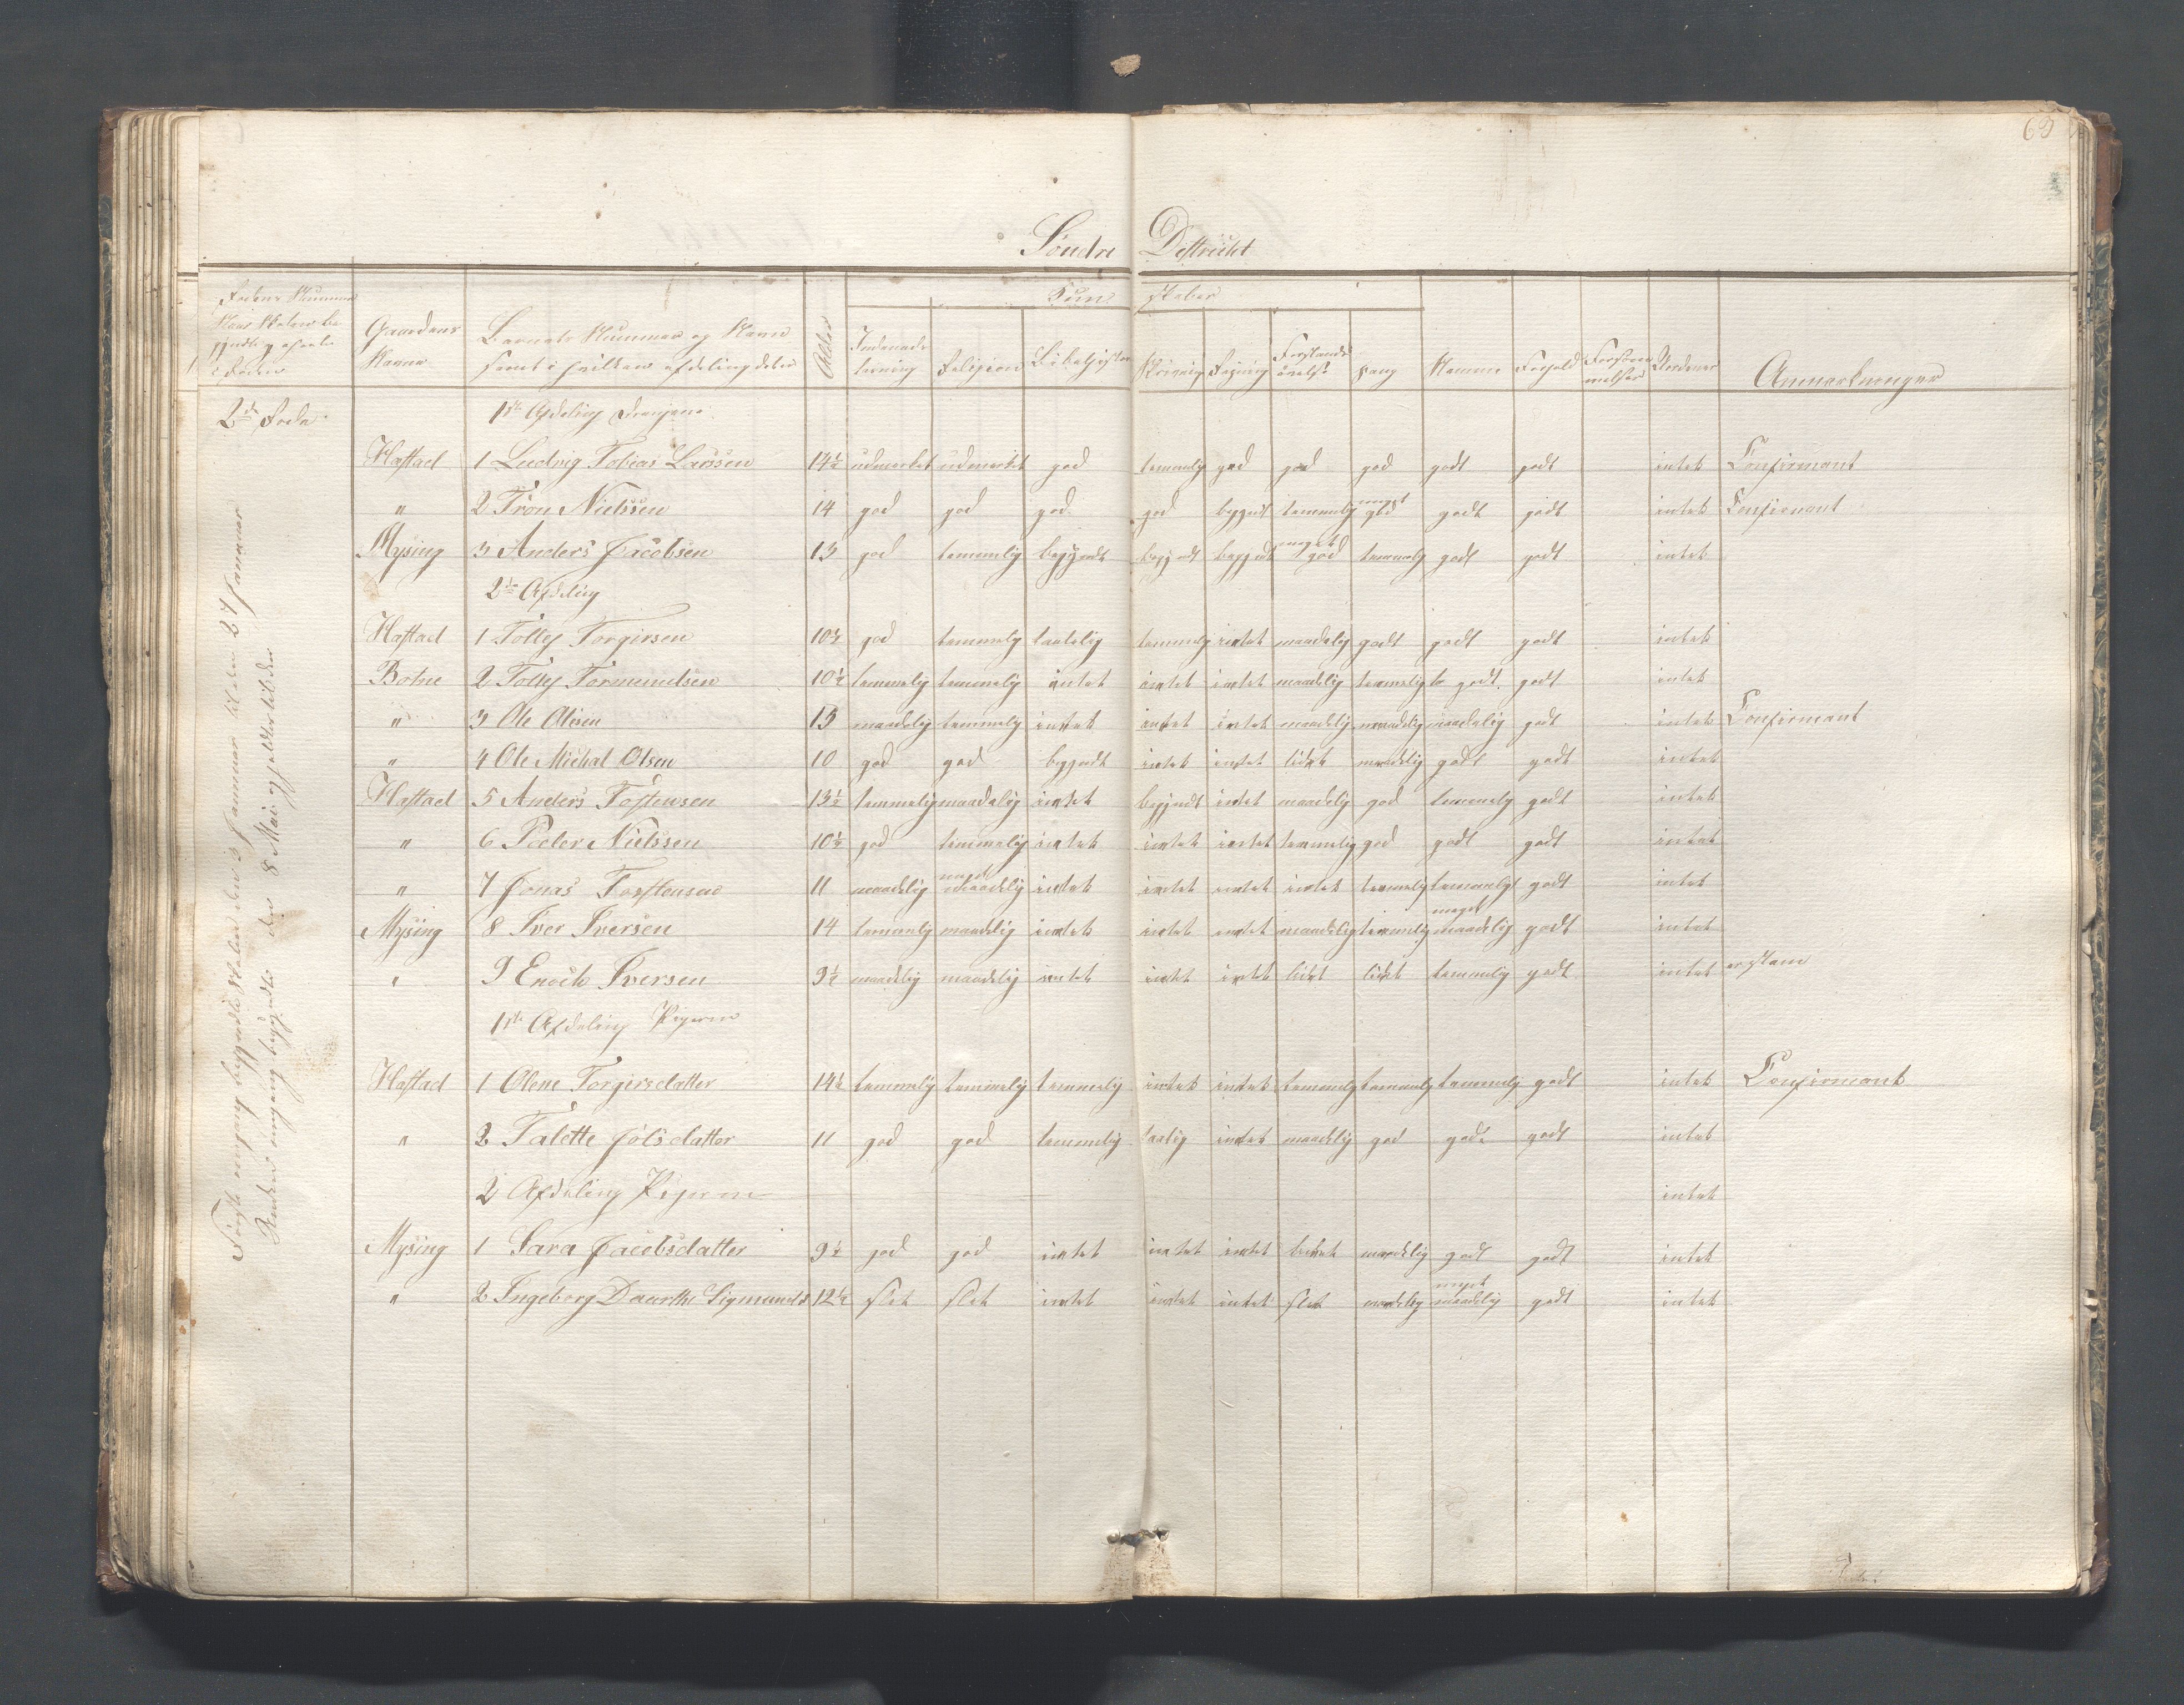 63
Söndre Destricht
Kun skaber
Rodens Nummer Naar Skolen be gyndte og sluttes i Roden
Gaardens Navne
Barnets Nummer og Navn samt i hvilken afdeling det er
Alder
Religion
Bibelhistorie
Skrivning
Regning
Forstands øvelse
Sang
Nemme
Forhold
Forsöm melser
Anmærkninger
2den Rode
1ste Afdeling Drengene
Hastad 1 Ludvig Tobias Larssen 14½ udmærket udmærket god temmelig god god god godt godt intet Confirmant
" 2 Tron Nielssen 14 god god god god begyndt temmelig meget god godt godt intet Confirmant
Mysing 3 Anders Jacobsen 13 god temmelig begyndt begyndt begyndt meget god temmelig godt godt intet
2den Afdeling
Hastad 1 Tolley Torgirsen 10½ god temmelig taalelig temmelig intet maadelig godt godt godt intet
Botne 2 Tolley Tormundsen 10½ temmelig temmelig intet intet intet maadelig temmelig godt godt intet
" 3 Ole Olssen 15 maadelig temmelig intet intet intet maadelig maadelig maadelig godt intet Confirmant
" 4 Ole Michal Olsen 10 god god begyndt intet intet lidet maadelig godt godt intet
Hastad 5 Anders Tostensen 13½ temmelig maadelig intet begyndt intet maadelig god temmelig godt intet
" 6 Peder Nielssen 10½ god temmelig intet intet intet temmelig god godt godt intet
" 7 Jonas Torstensen 11 maadelig meget maadelig intet intet intet intet temmelig temmelig godt intet
Mysing 8 Iver Iversen 14 temmelig maadelig intet intet intet maadelig temmelig meget maadelig godt intet
" 9 Enoch Iversen 9½ maadelig maadelig intet intet intet lidet lidet temmelig godt intet er stam
1ste Afdeling Pigerne
Hastad 1 Olene Torgirsdatter 14½ temmelig temmelig temmelig intet intet temmelig temmelig temmelig godt intet Confirmant
" 2 Talette Jölsdatter 11 god god temmelig taalig intet maadelig god godt godt intet
2 Afdeling Pigerne intet
Mysing 1 Sara Jacobsdatter 9½ god god intet intet intet lidet maadelig godt godt intet
" 2 Ingeborg Daarthe Sigmunds 12½ slet slet intet intet intet slet maadelig meget maadelig godt intet
Förste omgang begyndte Skolen den 3 Januar til den 27 Januar
Anden omgang begyndte den 8 Mai og holdt til den